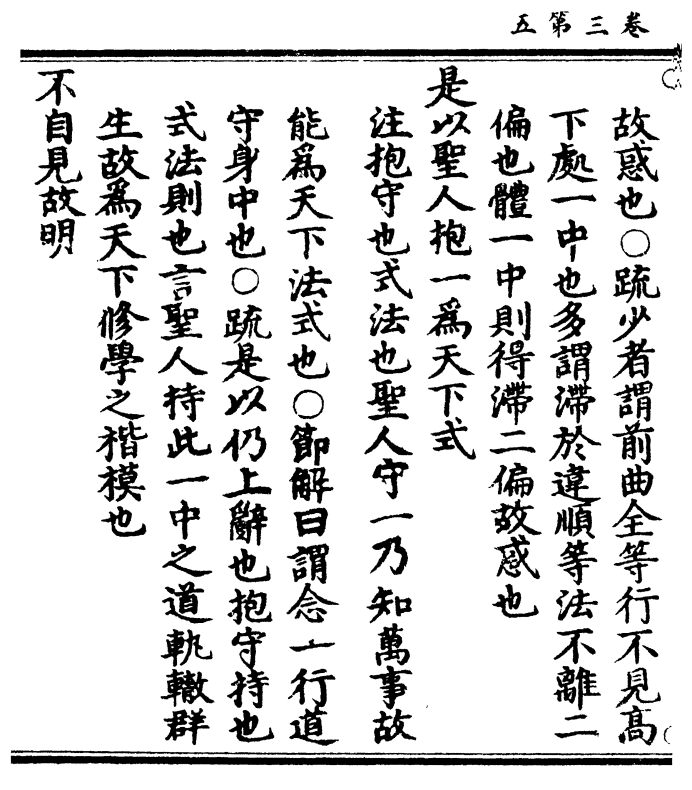 卷三第五
故惑也○䟽少者謂前曲全等行不見高
下處一中也多謂滯於違順等法不離二
偏也體一中則得滯二偏故惑也
是以聖人抱一爲天下式
注抱守也式法也聖人守一乃知萬事故
能爲天下法式也○節解曰謂念一行道
守身中也○䟽是以仍上辭也抱守持也
式法則也言聖人持此一中之道軌轍群
生故爲天下修學之楷模也
不自見故明